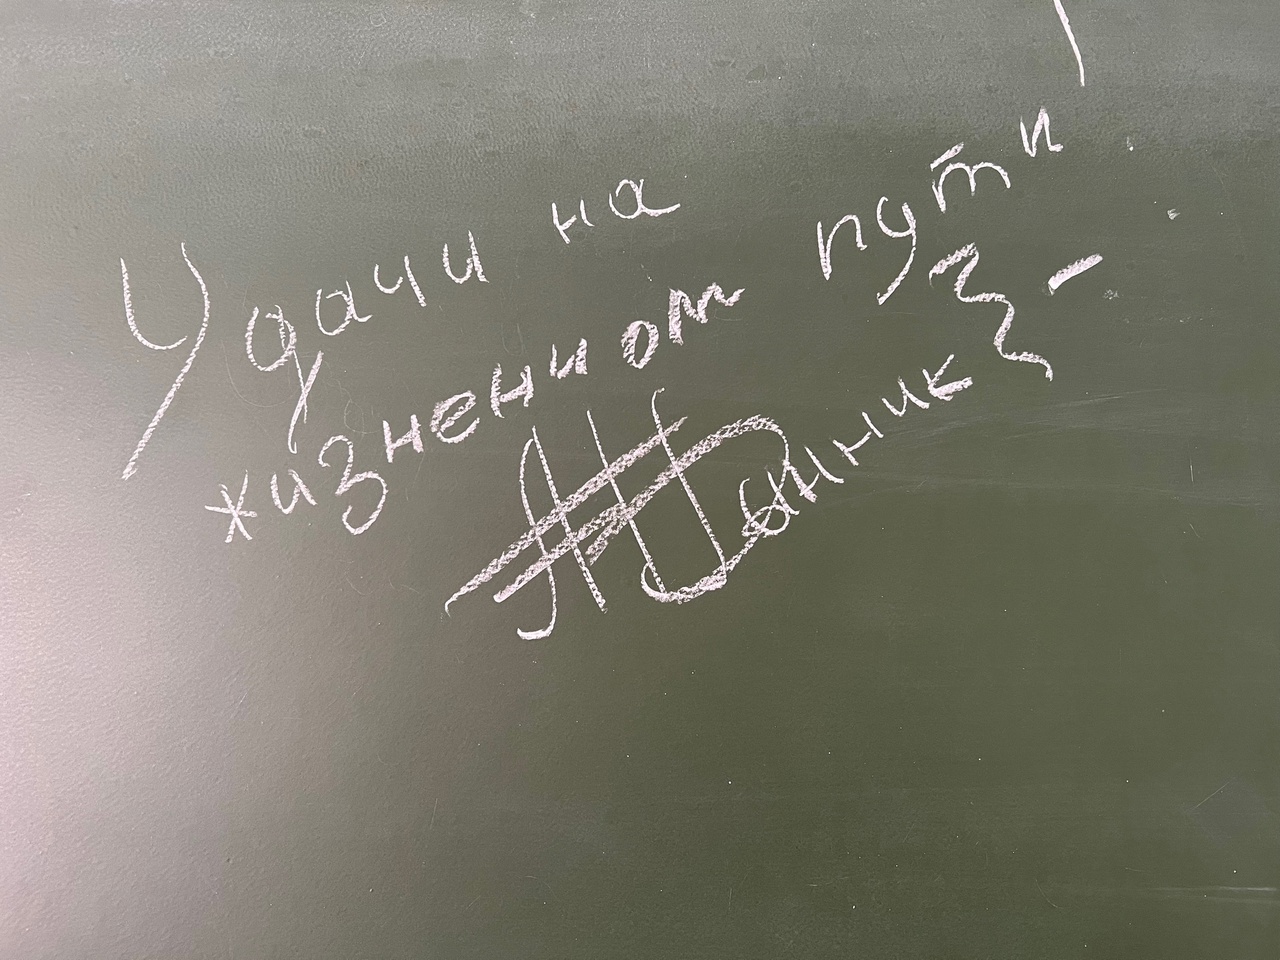 Удачи на
жизненном пути